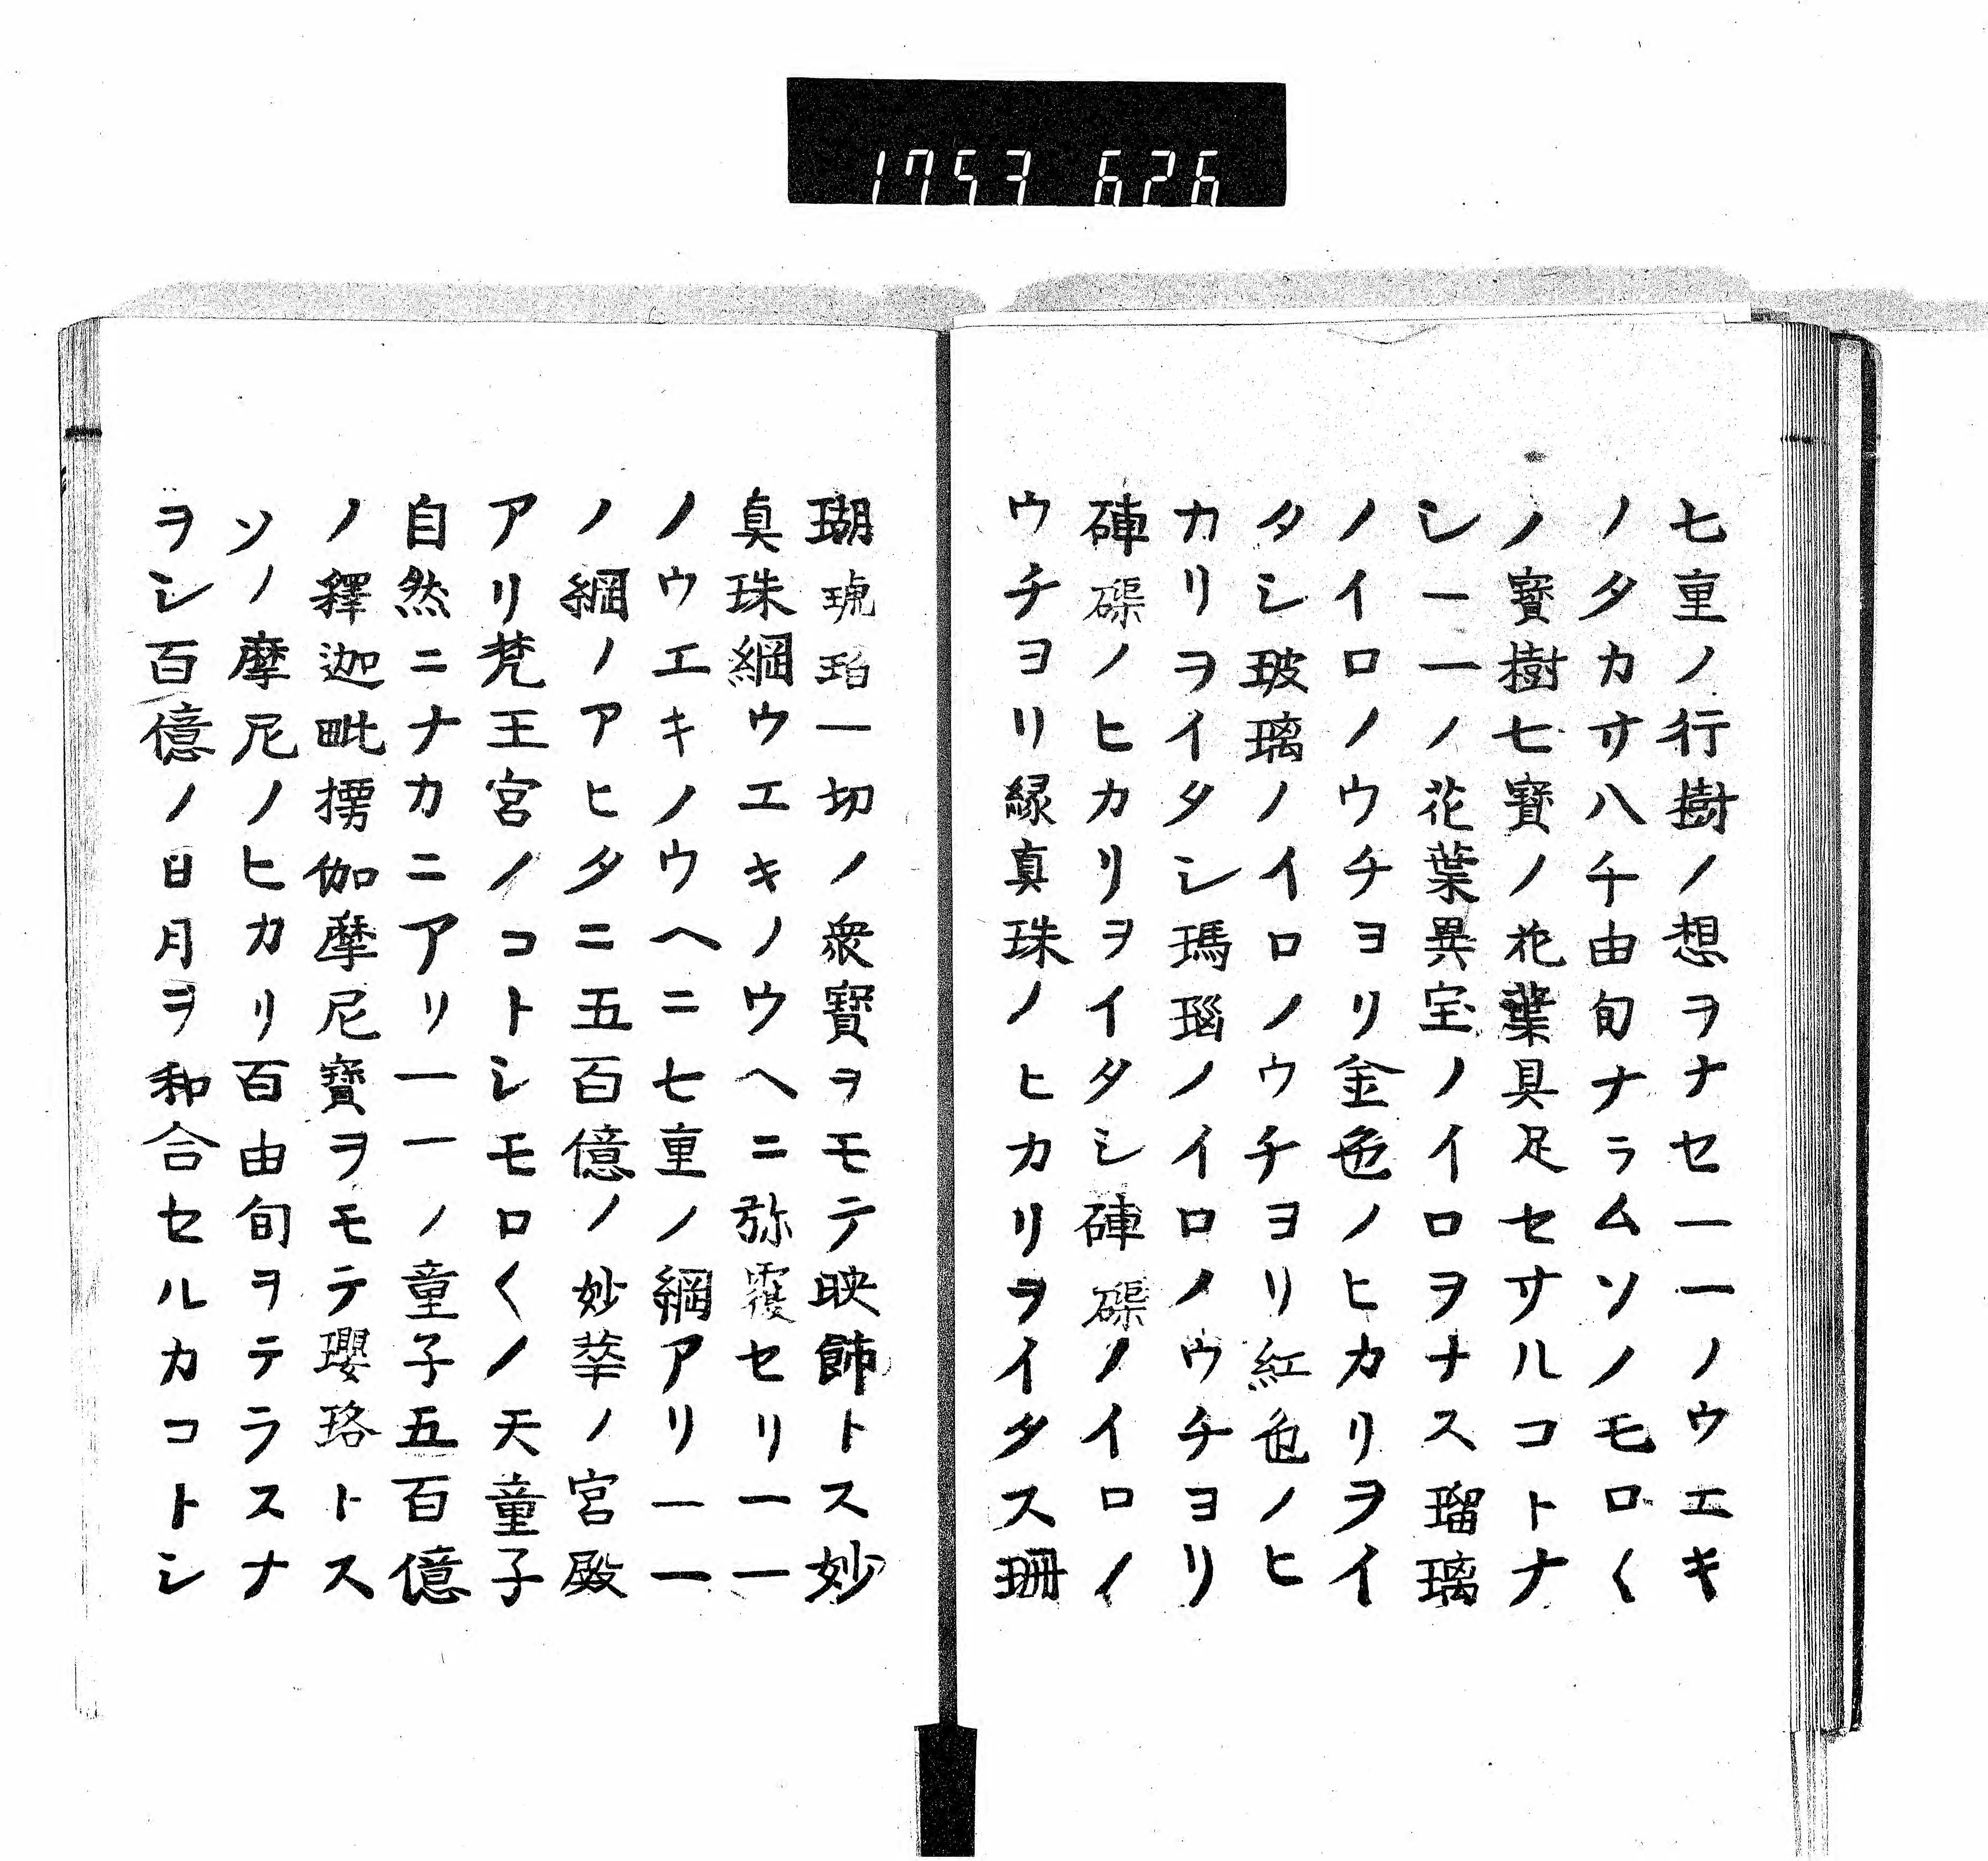 1753 626
七重ノ行樹ノ想ヲナセ一一ノウエキ
ノタカサ八千由旬ナラムソノモロ〱
ノ寳樹七寳ノ花葉具足セサルコトナ
シ一一ノ花葉異宝ノイロヲナス瑠璃
ノイロノウチヨリ金色ノヒカリヲイ
タシ玻璃ノイロノウチヨリ紅色ノヒ
カリヲイタシ瑪瑙ノイロノウチヨリ
硨磲ノヒカリヲイタシ硨磲ノイロノ
ウチヨリ緑真珠ノヒカリヲイタス珊
瑚琥珀一切ノ衆寳ヲモテ映飾トス妙
真珠綱ウエキノウヘニ弥覆セリ一一
ノウエキノウヘニ七重ノ綱アリ一一
ノ綱ノアヒタニ五百億ノ妙華ノ宮殿
アリ梵王宮ノコトシモロ〱ノ天童子
自然ニナカニアリ一一ノ童子五百億
ノ釋迦毗楞伽摩尼寳ヲモテ瓔珞トス
ソノ摩尼ノヒカリ百由旬ヲテラスナ
ヲシ百億ノ日月ヲ和合セルカコトシ